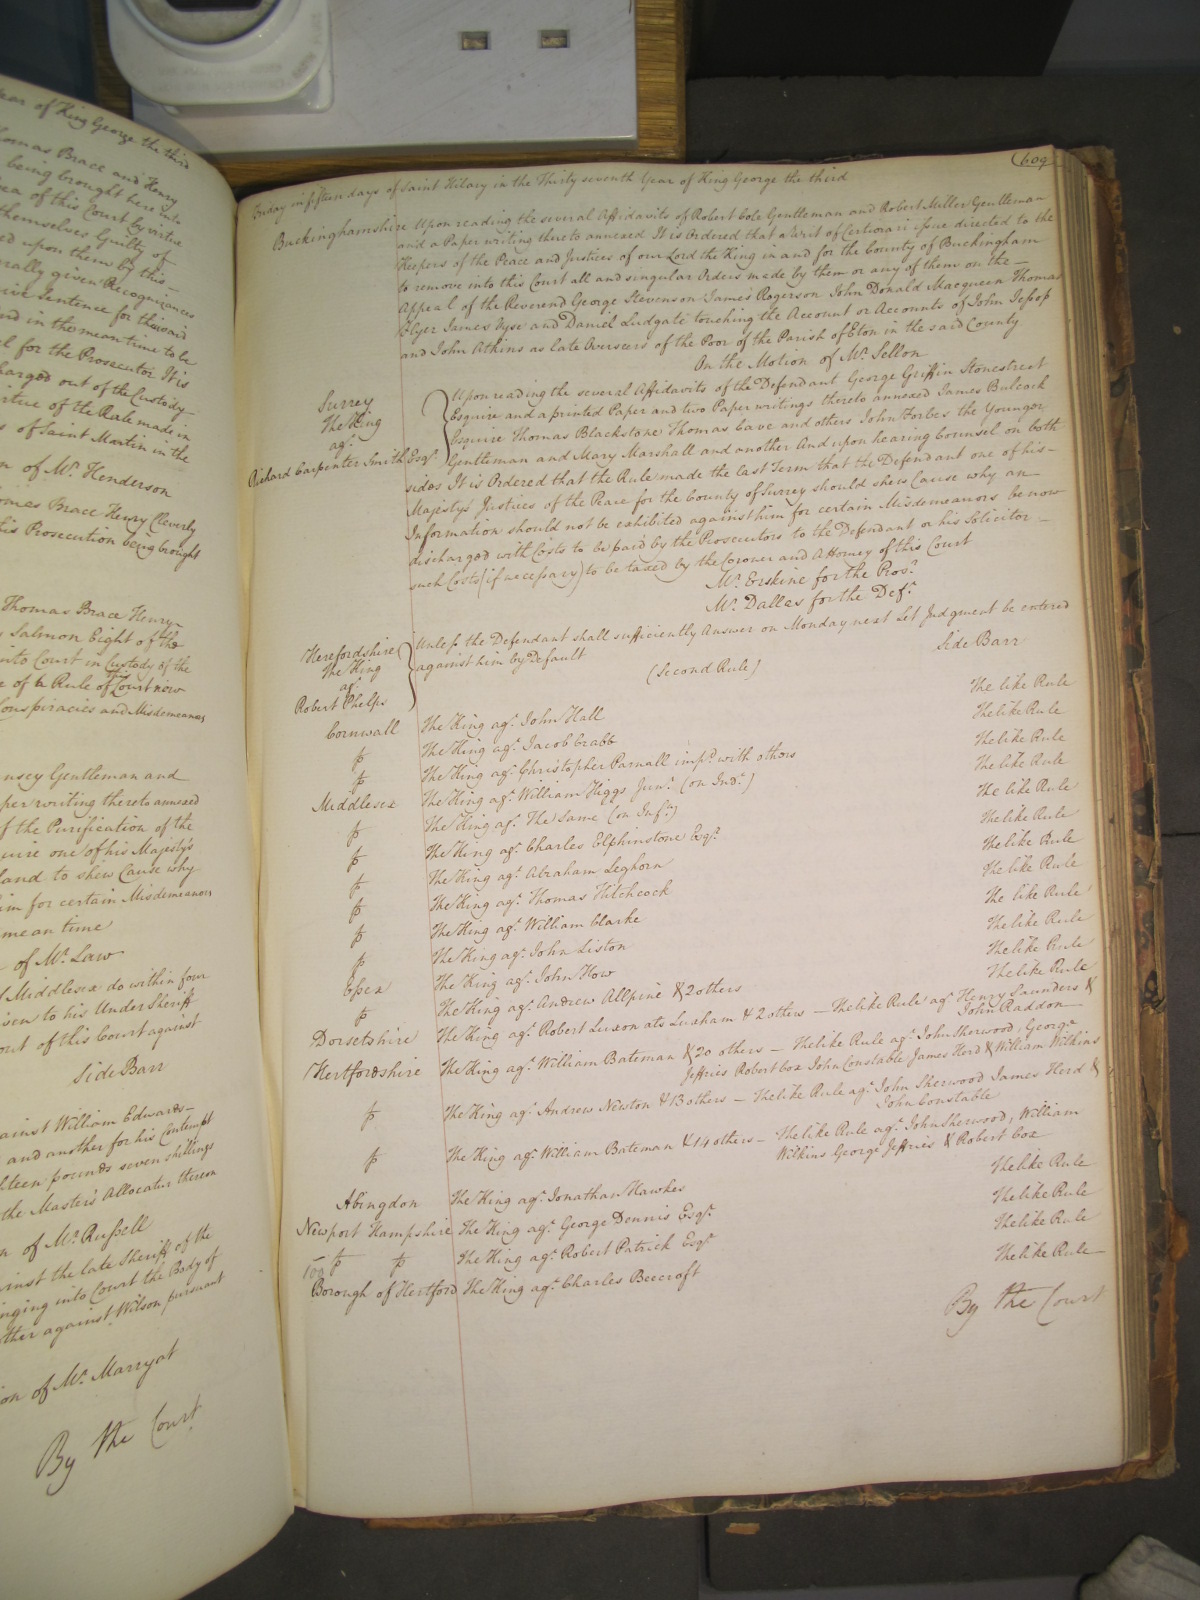 year of King George the third
Thomas Brace and Henry
being brought here into
of this Court by virtue
themselves Guilty of
upon them by this
given Recognizances
Sentence for those said
and in the mean time to be
for the Prosecutor It is
charged out of the Custody
virtue of the Rule made in
of Saint Martin in the
of Mr. Henderson
Thomas Brace Henry Cleverly
this Prosecution being brought
Thomas Brace Henry
Salmon Eight of the
into Court in Custody of the
of a Rule of Court now
Conspiracies and Misdemeanors
Gentleman and
paper writing thereto annexed
of the Purification of the
one of his Majesty's
to shew Cause why
him for certain Misdemeanors
mean time
of Mr. Law
Middlesex do within four
given to his Under Sheriff
out of this Court against
Side Barr
against William Edwards
and another for his Contempt
pounds seven shillings
the Master's Allocatur thereon
of Mr. Russell
against the late Sheriff of the
bringing into Court the Body of
against Wilson pursuant
of Mr. Marryat
By the Court
609
Friday in fifteen days of Saint Hilary in the Thirty seventh Year of King George the third
Buckinghamshire Upon reading the several Affidavits of Robert Cole Gentleman and Robert Miller Gentleman
and a Paper writing thereto annexed It is Ordered that a Writ of Certiorari issue directed to the
Keepers of the Peace and Justices of our Lord the King in and for the County of Buckingham
to remove into this Court all and singular Orders made by them or any of them on the
Appeal of the Reverend George Stevenson James Rogerson John Donald Macqueen Thomas
Clyer James Nyse and Daniel Ludgate touching the Account or Accounts of John Jessop
and John Atkins as late Overseers of the Poor of the Parish of Eton in the said County
On the Motion of Mr. Sellon
Surrey
The King
agt.
Richard Carpenter Smith Esqr.
Upon reading the several Affidavits of the Defendant George Griffin Stonestreet
Esquire and a printed Paper and two Paper writings thereto annexed James Bulcock
Esquire Thomas Blackstone Thomas Cave and others John Forbes the Younger
Gentleman and Mary Marshall and another And upon hearing Counsel on both
sides It is Ordered that the Rule made the last Term that the Defendant one of his
Majesty's Justices of the Peace for the County of Surrey should shew Cause why an
Information should not be exhibited against him for certain Misdemeanors be now
discharged with Costs to be paid by the Prosecutors to the Defendant or his Solicitor
such Costs (if necessary) to be taxed by the Coroner and Attorney of this Court
Mr. Erskine for the Pros.r
Mr. Dallas for the Def.t
Herefordshire
The King
agt.
Robert Phelps
Unless the Defendant shall sufficiently Answer on Monday next Let Judgment be entered
against him by Default (Second Rule) Side Barr
Cornwall The King agt. John Hall The like Rule
þ The King agt. Jacob Crabb The like Rule
þ The King agt. Christopher Parnall imp.d with others The like Rule
Middlesex The King agt. William Higgs Junr. (on Ind.t) The like Rule
þ The King agt. The Same (on Inf.n) The like Rule
þ The King agt. Charles Elphinstone Esqr. The like Rule
þ The King agt. Abraham Leghorn The like Rule
þ The King agt. Thomas Hitchcock The like Rule
þ The King agt. William Clarke The like Rule
þ The King agt. John Liston The like Rule
Essex The King agt. John How The like Rule
þ The King agt. Andrew Allpine & 2 others The like Rule
Dorsetshire The King agt. Robert Luxon als Luxham & 2 others — The like Rule agt. Henry Saunders &
John Raddon
Hertfordshire The King agt. William Bateman & 20 others — The like Rule agt. John Sherwood, George
Jeffries Robert Cox John Constable James Herd & William Wilkins
þ The King agt. Andrew Newton & 13 others — The like Rule agt. John Sherwood James Herd &
John Constable
þ The King agt. William Bateman & 14 others — The like Rule agt. John Sherwood, William
Wilkins George Jeffries & Robert Cox
Abingdon The King agt. Jonathan Hawkes The like Rule
Newport Hampshire The King agt. George Dennis Esqr. The like Rule
þ þ The King agt. Robert Patrick Esqr. The like Rule
Borough of Hertford The King agt. Charles Beecroft The like Rule
By the Court